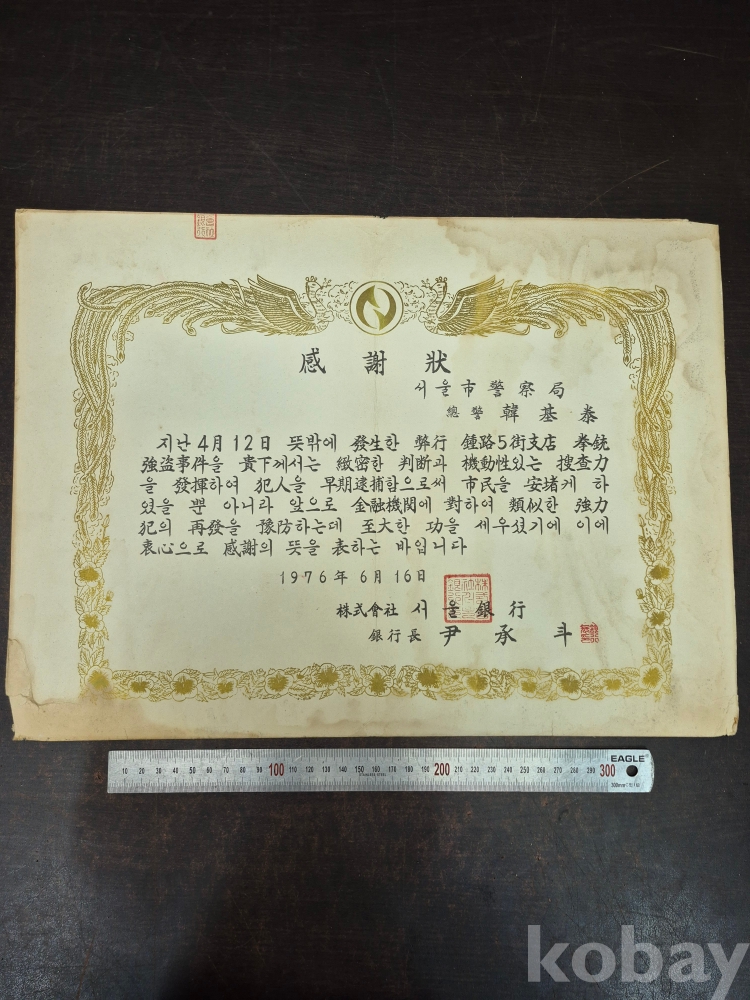 感謝狀
서울市警察局
總警 韓基泰
지난 4月 12日 뜻밖에 發生한 弊行 鍾路5街支店 拳銃
強盜事件을 貴下께서는 緻密한 判断과 機動性있는 搜查力
을 發揮하여 犯人을 早期逮捕함으로써 市民을 安堵케 하
였을 뿐 아니라 앞으로 金融機関에 對하여 類似한 強力
犯의 再發을 豫防하는데 至大한 功을 세우셨기에 이에
衷心으로 感謝의 뜻을 表하는 바입니다
1976年 6月 16日
株式會社 서울銀行
銀行長 尹承斗
10 20 30 40 50 60 70 80 90 100 110 120 130 140 150 160 170 180 190 200 210 220 230 240 250 260 270 280 290 300
EAGLE
STAINLESS STEEL
kobay